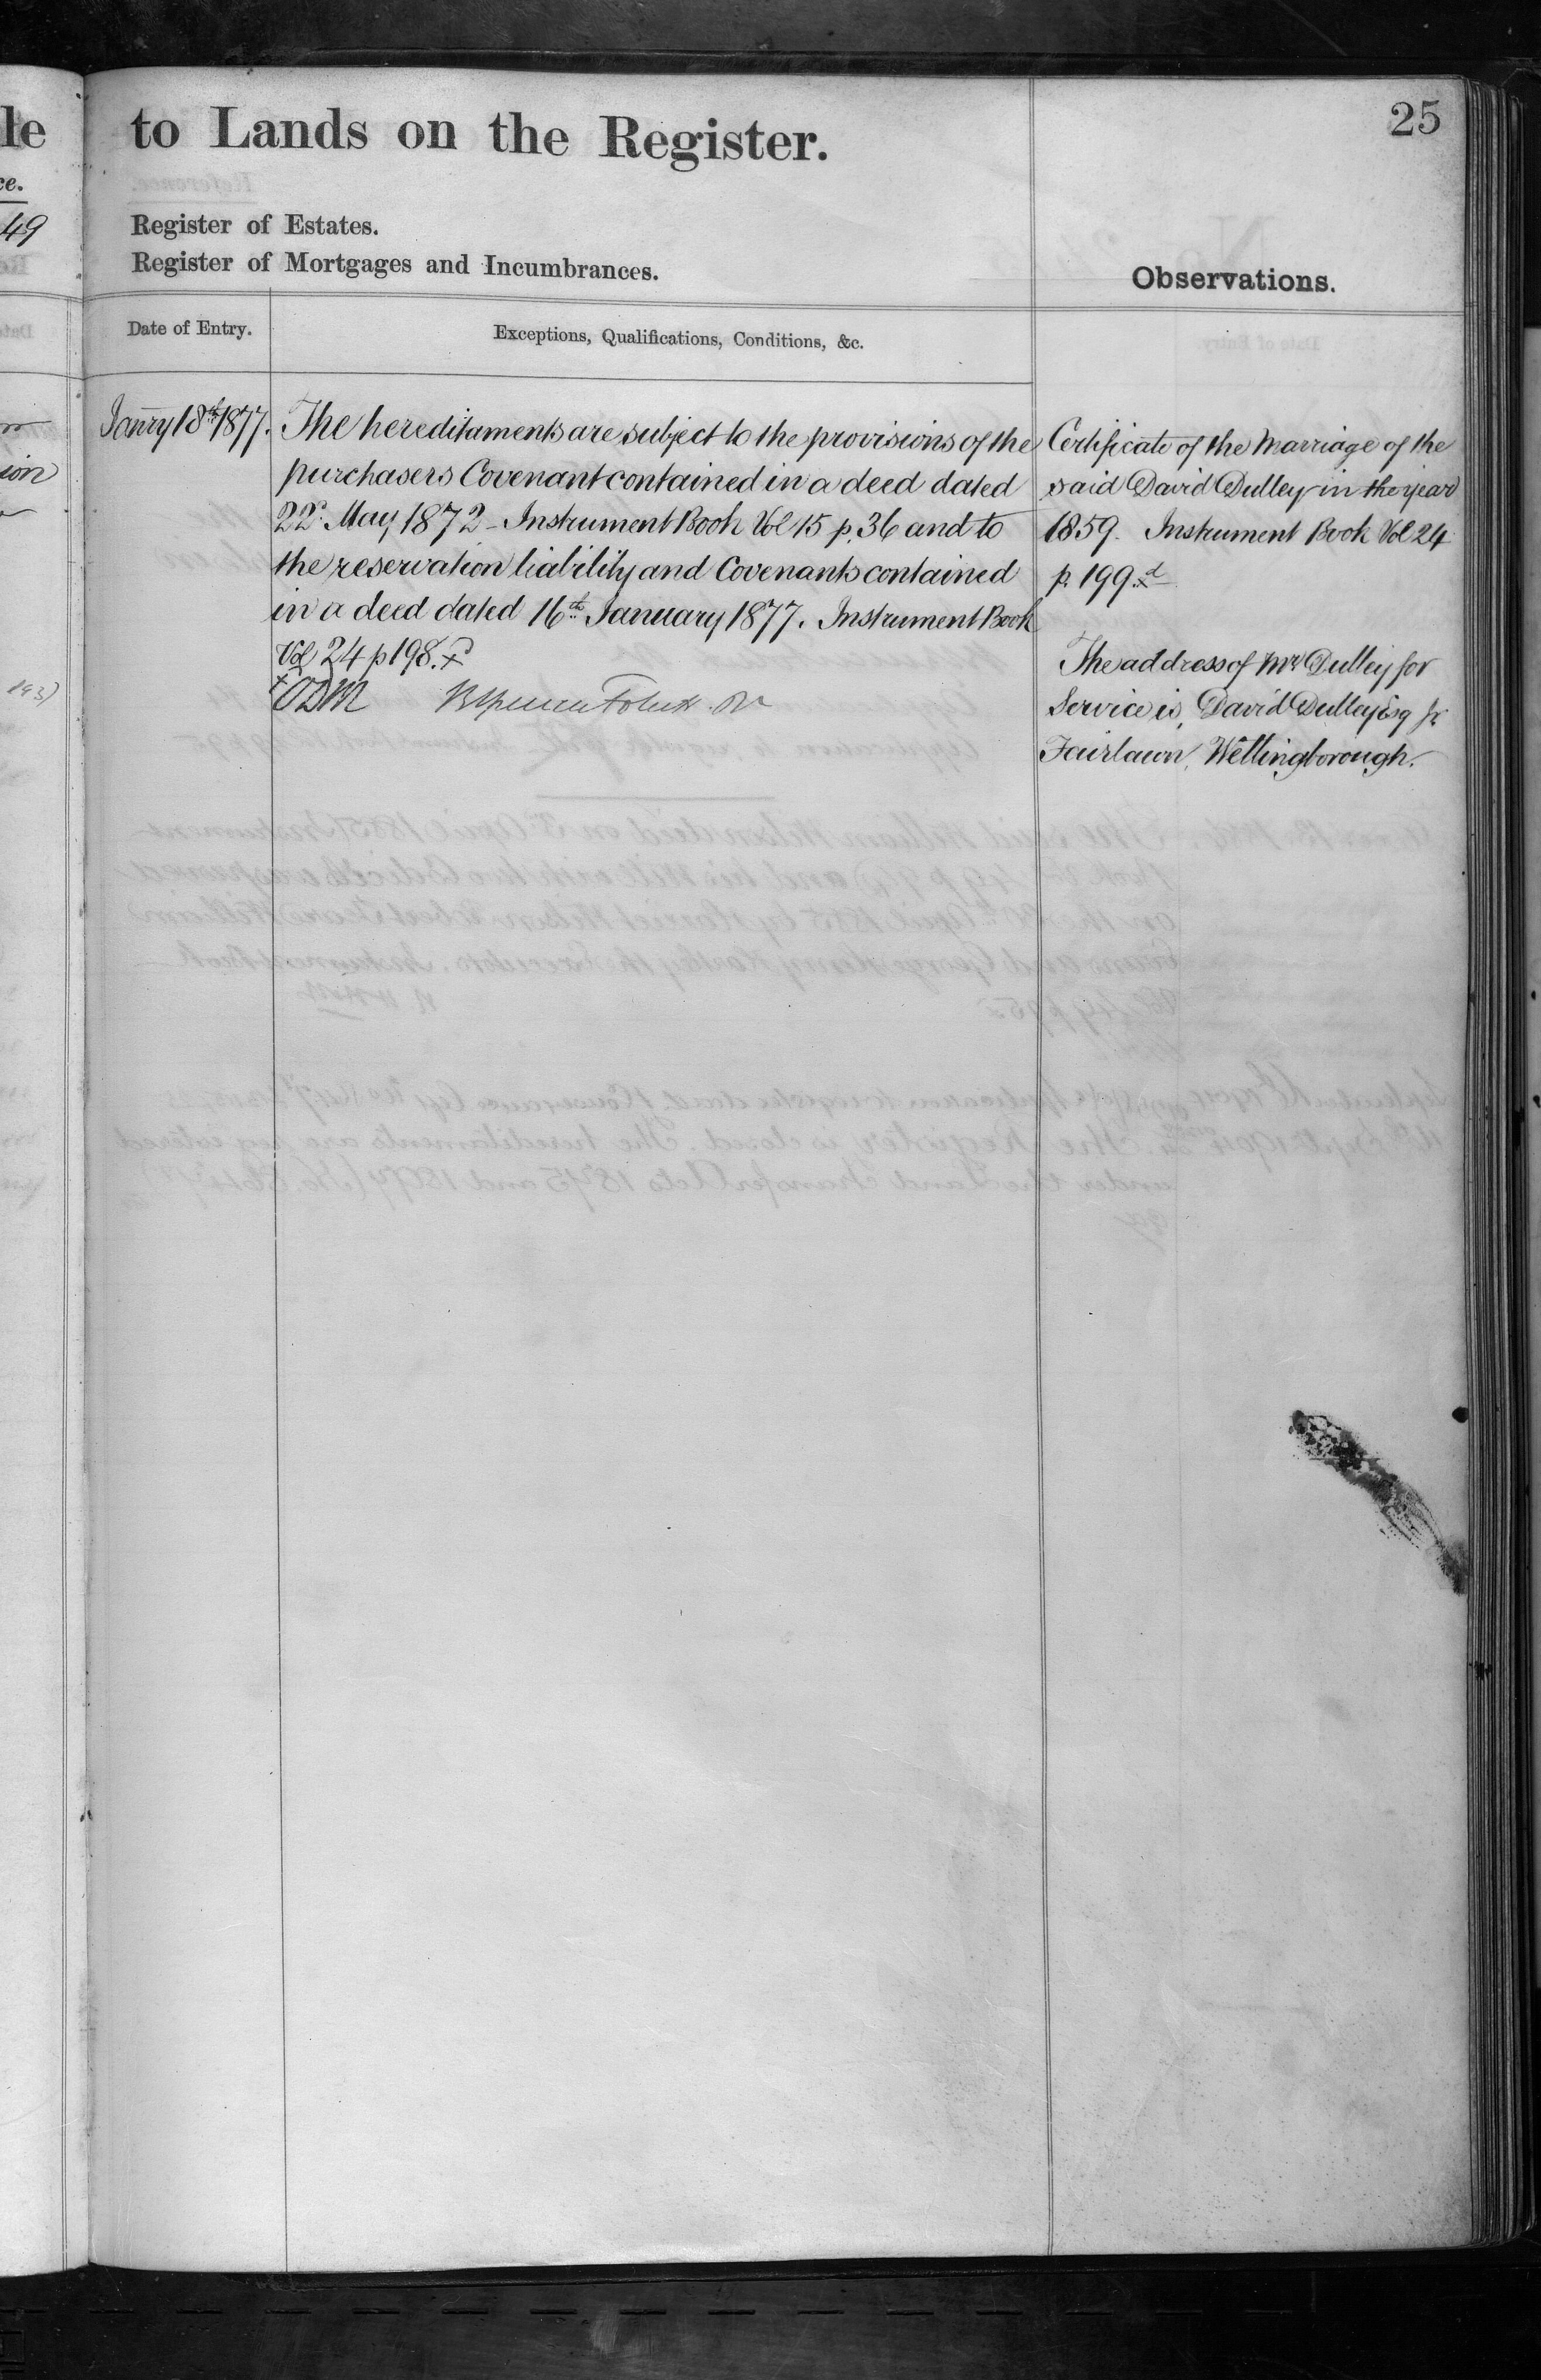 le
ce.
49
ion
193)
to Lands on the Register.
25
Register of Estates.
Register of Mortgages and Incumbrances.
Observations.
Date of Entry.
Exceptions, Qualifications, Conditions, &c.
Janry 18th 1877.
The hereditaments are subject to the provisions of the
purchasers Covenant contained in a deed dated
22d May 1872 - Instrument Book Vol 15 p. 36 and to
the reservation liability and Covenants contained
in a deed dated 16th January 1877. Instrument Book
Vol 24 p 198.
ODM
Certificate of the Marriage of the
said David Dulley in the year
1859. Instrument Book Vol 24
p. 199.
The address of Mr Dulley for
Service is, David Dulley Esq Jr
Fairlawn, Wellingborough.